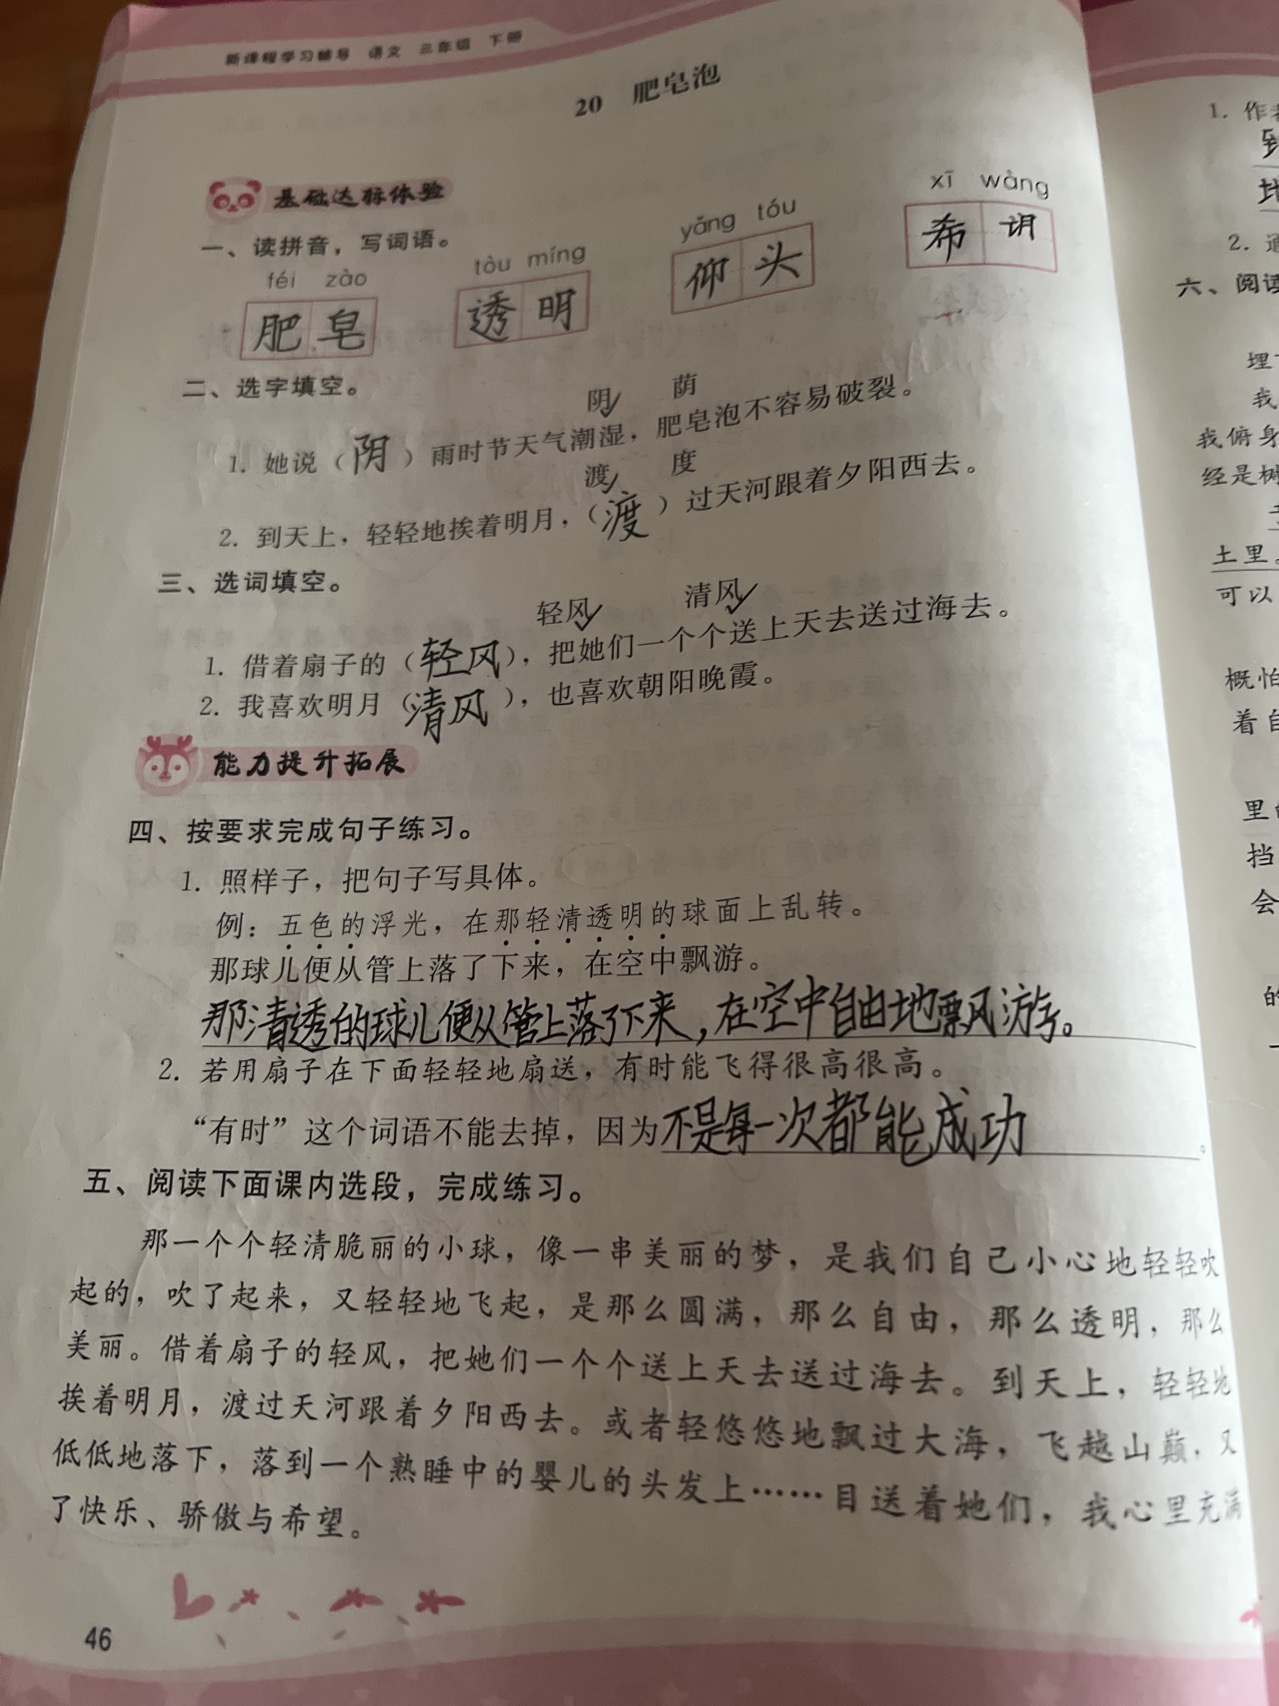 新课程学习辅导 语文 三年级 下册
20 肥皂泡
基础达标体验
一、读拼音，写词语。
féi zào tòu míng yǎng tóu xī wàng
肥皂 透明 仰头 希
二、选字填空。
阴 荫
1. 她说（阴）雨时节天气潮湿，肥皂泡不容易破裂。
渡 度
2. 到天上，轻轻地挨着明月，（渡）过天河跟着夕阳西去。
三、选词填空。
轻风 清风
1. 借着扇子的（轻风），把她们一个个送上天去送过海去。
2. 我喜欢明月（清风），也喜欢朝阳晚霞。
能力提升拓展
四、按要求完成句子练习。
1. 照样子，把句子写具体。
例：五色的浮光，在那轻清透明的球面上乱转。
那球儿便从管上落了下来，在空中飘游。
那清透的球儿便从管上落了下来，在空中自由地飘游。
2. 若用扇子在下面轻轻地扇送，有时能飞得很高很高。
“有时”这个词语不能去掉，因为不是每一次都能成功。
五、阅读下面课内选段，完成练习。
那一个个轻清脆丽的小球，像一串美丽的梦，是我们自己小心地轻轻吹
起的，吹了起来，又轻轻地飞起，是那么圆满，那么自由，那么透明，那么
美丽。借着扇子的轻风，把她们一个个送上天去送过海去。到天上，轻轻地
挨着明月，渡过天河跟着夕阳西去。或者轻悠悠地飘过大海，飞越山巅，又
低低地落下，落到一个熟睡中的婴儿的头发上……目送着她们，我心里充满
了快乐、骄傲与希望。
46
1. 作
地
2.
六、阅读
埋
我
我俯身
经是树
土里。
可以
概怕
着自
里的
挡
会
的